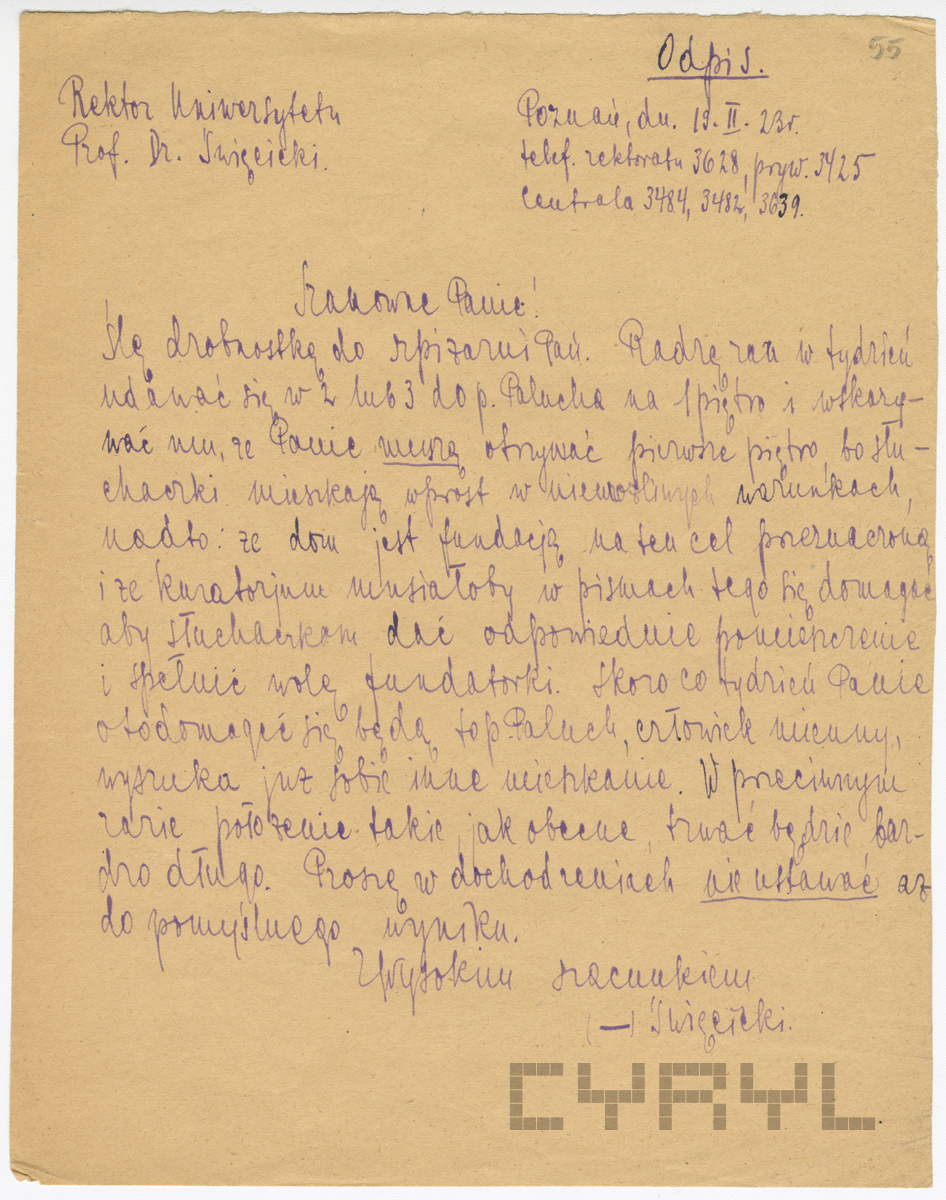 55
Odpis.
Rektor Uniwersytetu
Prof. Dr. Święcicki.
Poznań, dn. 19. II. 23r.
telef. rektoratu 3628, pryw. 3425
Centrala 3484, 3482, 3639.
Szanowne Panie!
Ślę drobnostkę do spiżarni Pań. Radzę raz w tydzień
udawać się w 2 lub 3 do p. Palucha na 1 piętro i wskazy-
wać mu, że Panie muszą otrzymać pierwsze piętro, bo słu-
chaczki mieszkają wprost w niemożliwych warunkach,
nadto: że dom jest fundacją na ten cel przeznaczoną
i że Kuratorjum musiałoby w pismach tego się domagać
aby słuchaczkom dać odpowiednie pomieszczenie
i spełnić wolę fundatorki. Skoro co tydzień Panie
o to domagać się będą to p. Paluch, człowiek mienny,
wyszuka już sobie inne mieszkanie. W przeciwnym
razie położenie takie, jak obecne, trwać będzie bar-
dzo długo. Proszę w dochodzeniach nie ustawać aż
do pomyślnego wyniku.
Z wysokim szacunkiem
(—) Święcicki.
CYRYL